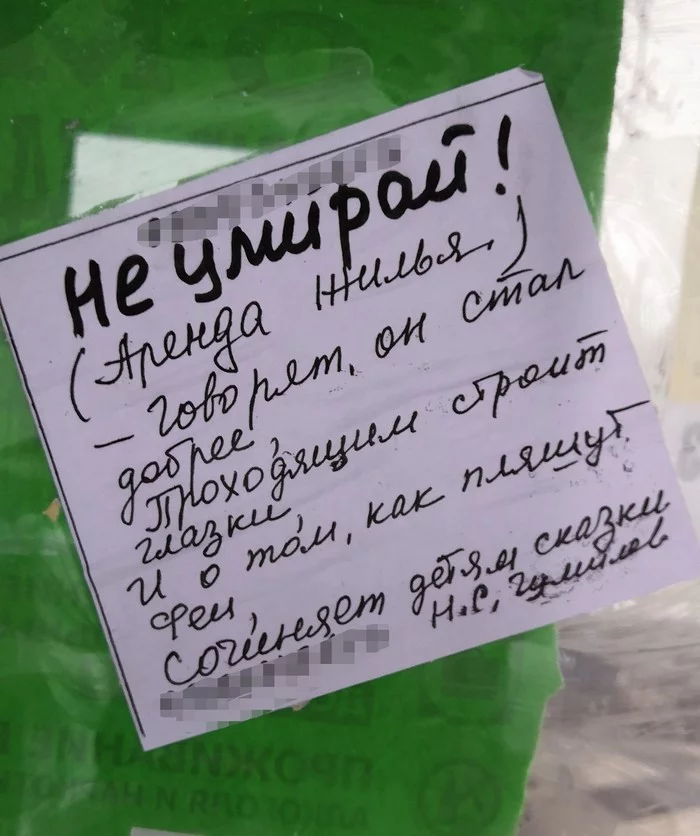 Не умирай!
(Аренда жилья.)
– говорят, он стал
добрее,
Проходящим строит
глазки,
И о том, как пляшут
феи,
Сочиняет детям сказки
Н.С. Гумилов
ПРОЖИВАНИЕ